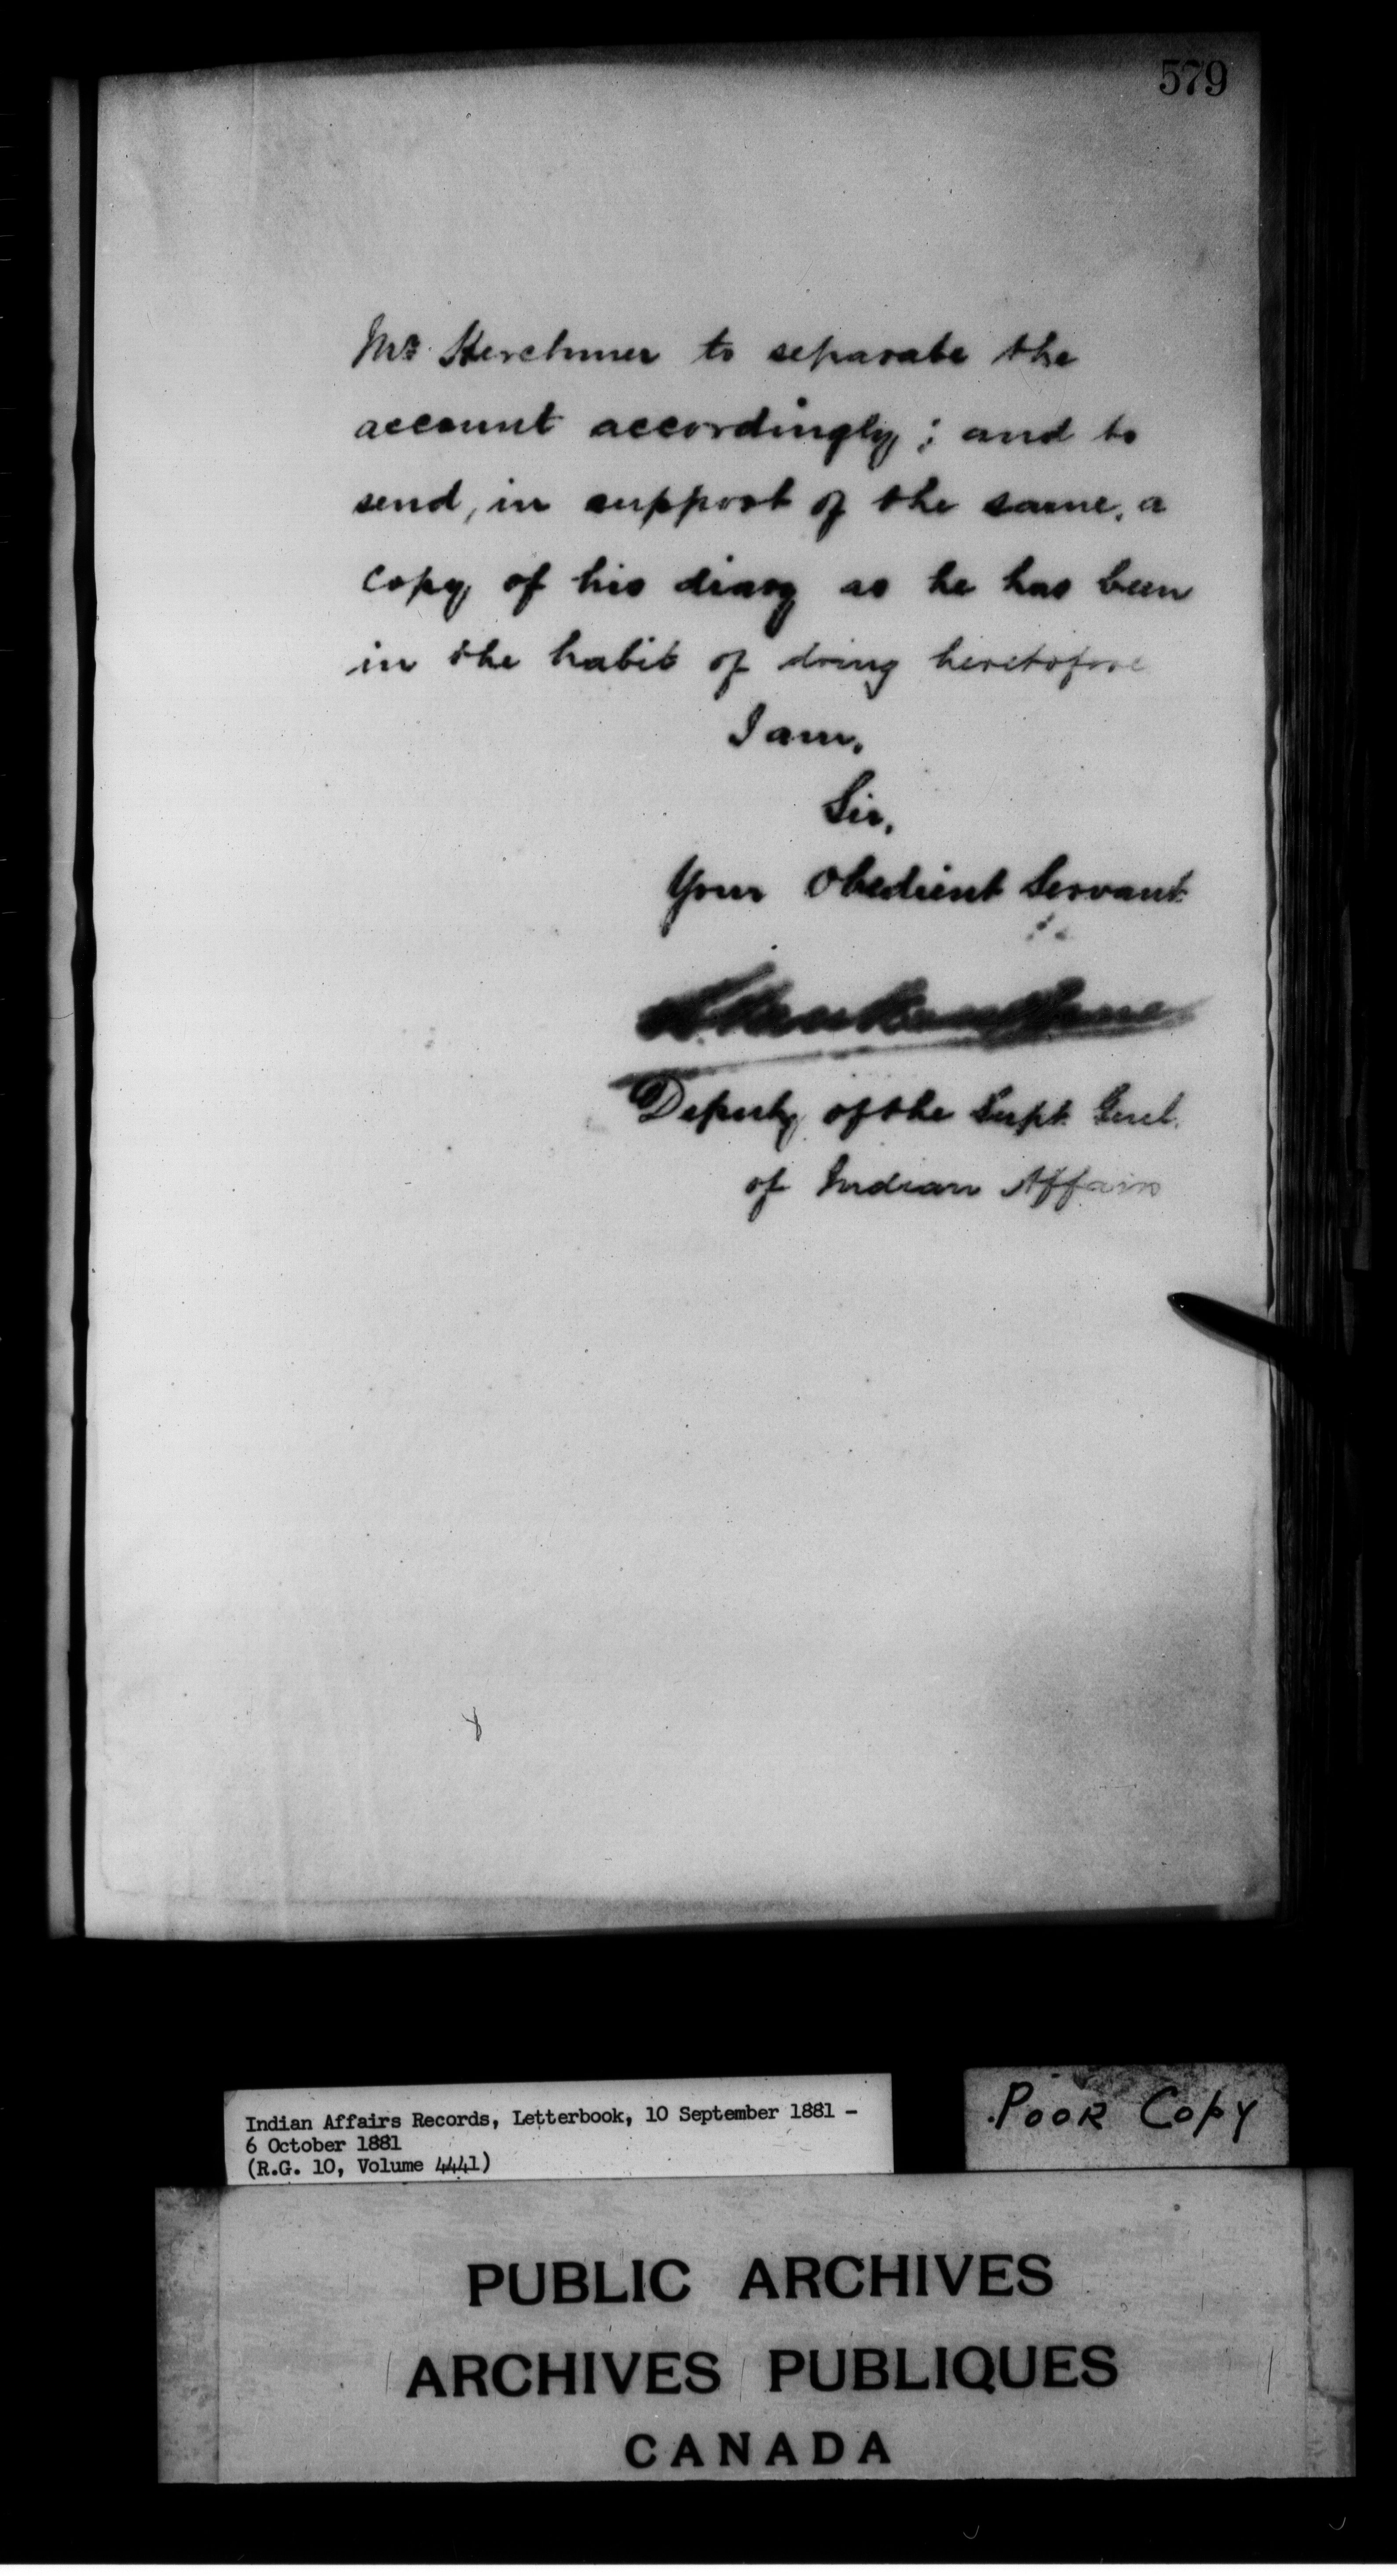 579
Mr. Herchmer to separate the
account accordingly; and to
send, in support of the same, a
copy of his diary as he has been
in the habit of doing heretofore
I am,
Sir,
Your Obedient Servant
Deputy of the Supt. Genl.
of Indian Affairs
Indian Affairs Records, Letterbook, 10 September 1881 -
6 October 1881
(R.G. 10, Volume 4441)
Poor Copy
PUBLIC ARCHIVES
ARCHIVES PUBLIQUES
CANADA